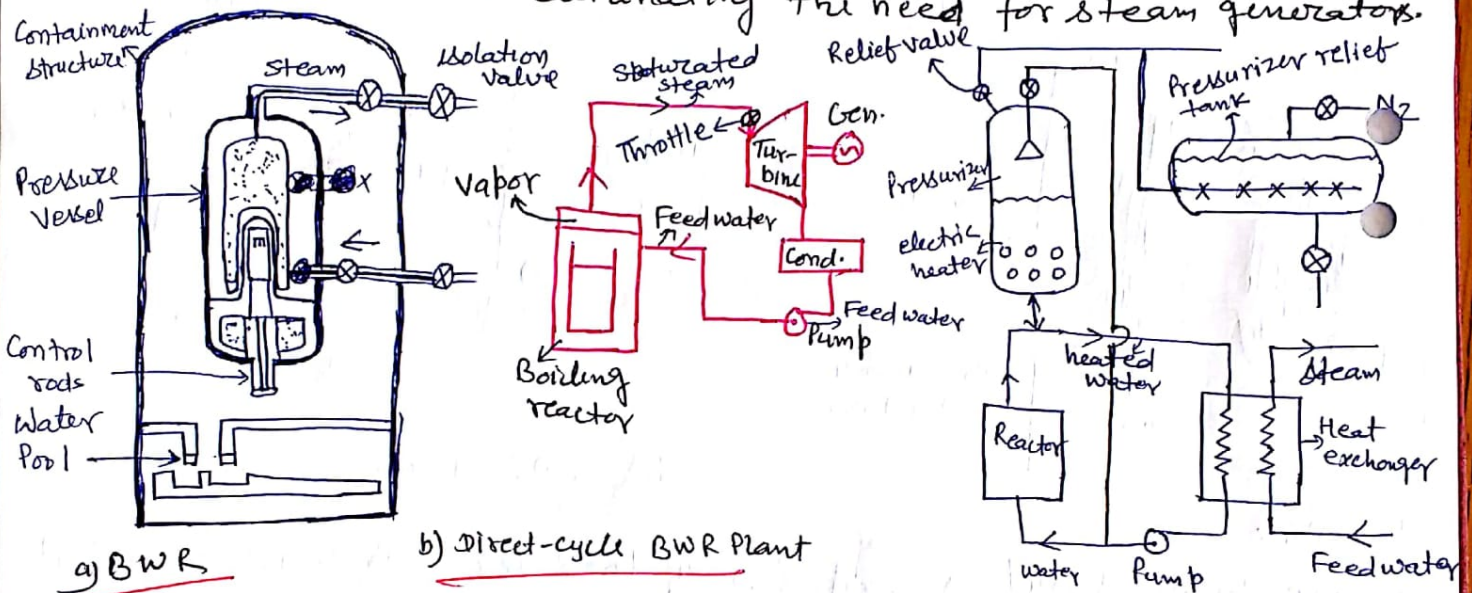 eliminating the need for steam generators.
Containment
structure
Steam
Isolation
valve
Pressure
Vessel
X
Control
rods
Water
Pool
a) BWR
Saturated
steam
Throttle
Gen.
Tur-
bine
Vapor
Feedwater
Cond.
Feedwater
Pump
Boiling
reactor
b) Direct-cycle BWR Plant
Relief valve
Pressurizer relief
tank
N2
Pressurizer
electric
heater
heated
water
Steam
Reactor
Heat
exchanger
water
Pump
Feedwater